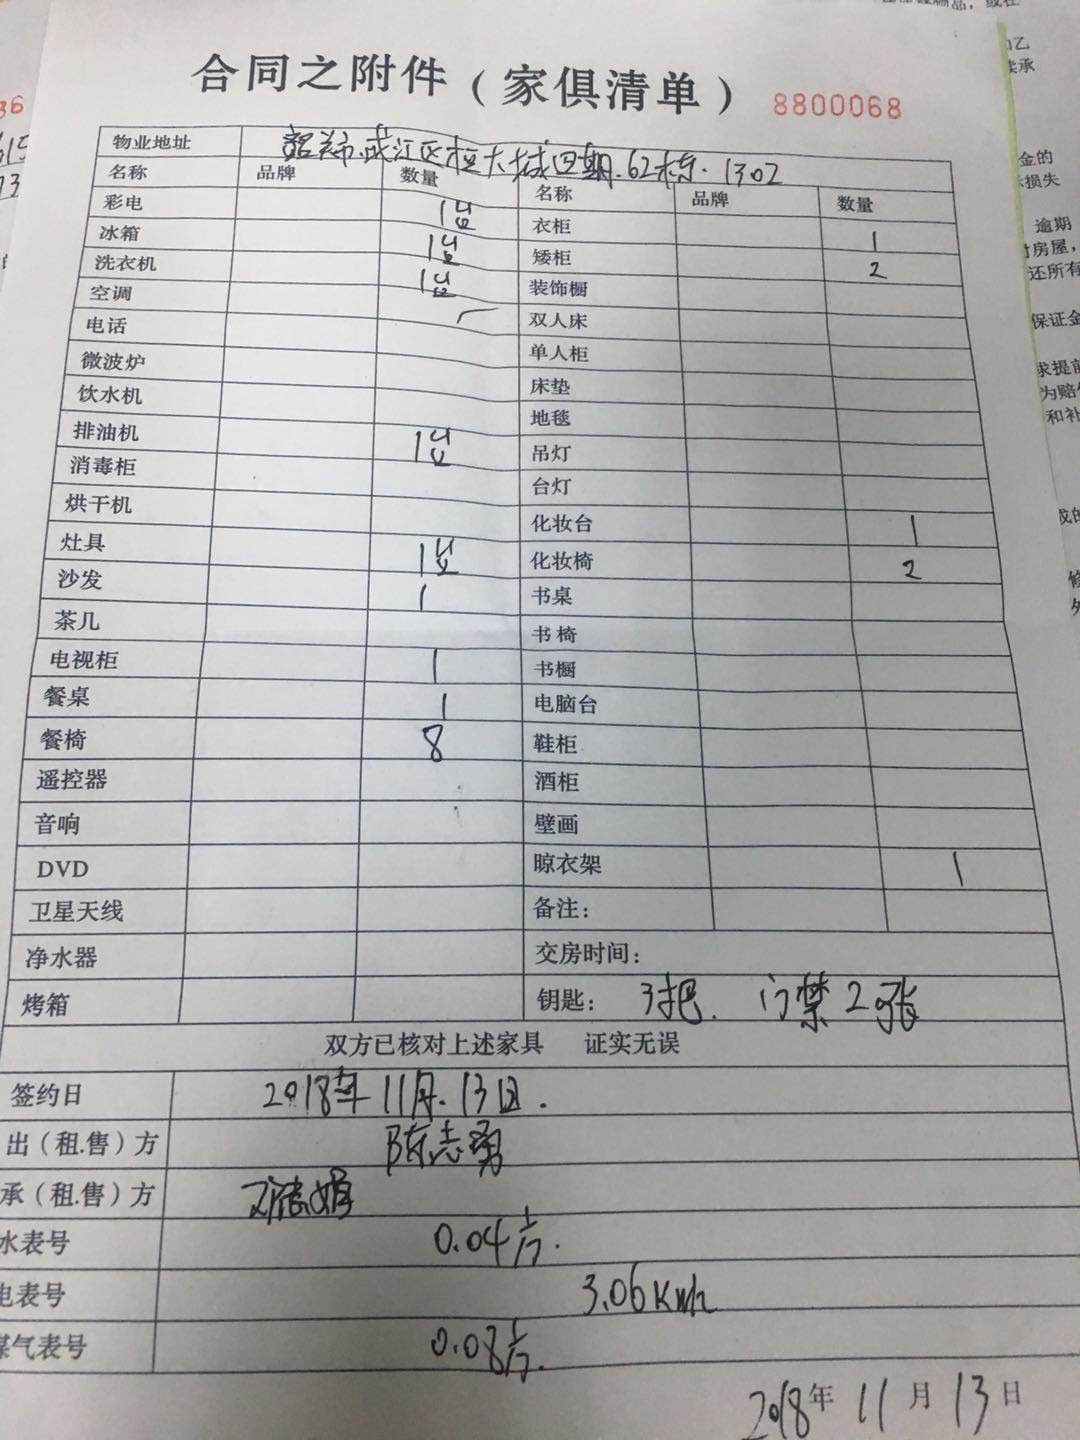 合同之附件（家俱清单） 8800068
物业地址 韶关市.武江区恒大城四期.62栋.1302
名称 品牌 数量 名称 品牌 数量
彩电 1台 衣柜 1
冰箱 1台 矮柜 2
洗衣机 1台 装饰橱
空调 双人床
电话 单人柜
微波炉 床垫
饮水机 地毯
排油机 1台 吊灯
消毒柜 台灯
烘干机 化妆台 1
灶具 1台 化妆椅 2
沙发 1 书桌
茶几 书椅
电视柜 1 书橱
餐桌 1 电脑台
餐椅 8 鞋柜
遥控器 酒柜
音响 壁画
DVD 晾衣架 1
卫星天线 备注：
净水器 交房时间：
烤箱 钥匙： 3把. 门禁2张
双方已核对上述家具 证实无误
签约日 2018年11月.13日.
出（租.售）方 陈志勇
承（租.售）方
水表号 0.04方.
电表号 3.06Kwh
煤气表号 0.08方.
2018年11月13日